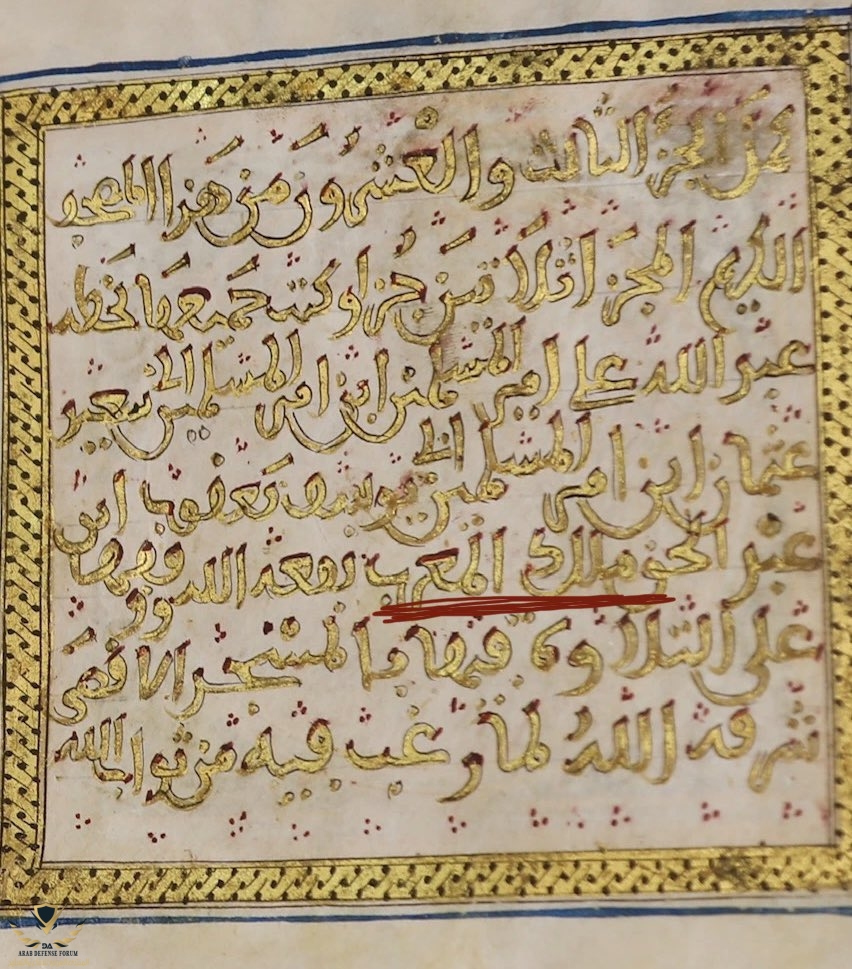 تمز الجزء الثالث والعشرون من هذا المصحف
الكريم المجزا ثلاثين جزءا وكتب جميعها بخطه
عبد الله علي امير المسلمين ابن امير المسلمين ابي سعيد
عثمان ابن امير المسلمين ابي يوسف يعقوب ابن
عبد الحق ملك المغرب نفعه الله ووقفها
على التلاوة فيها بالمسجد الاقصى
شرفه الله لما رغب فيه من ثواب الله
ARAB DEFENSE FORUM